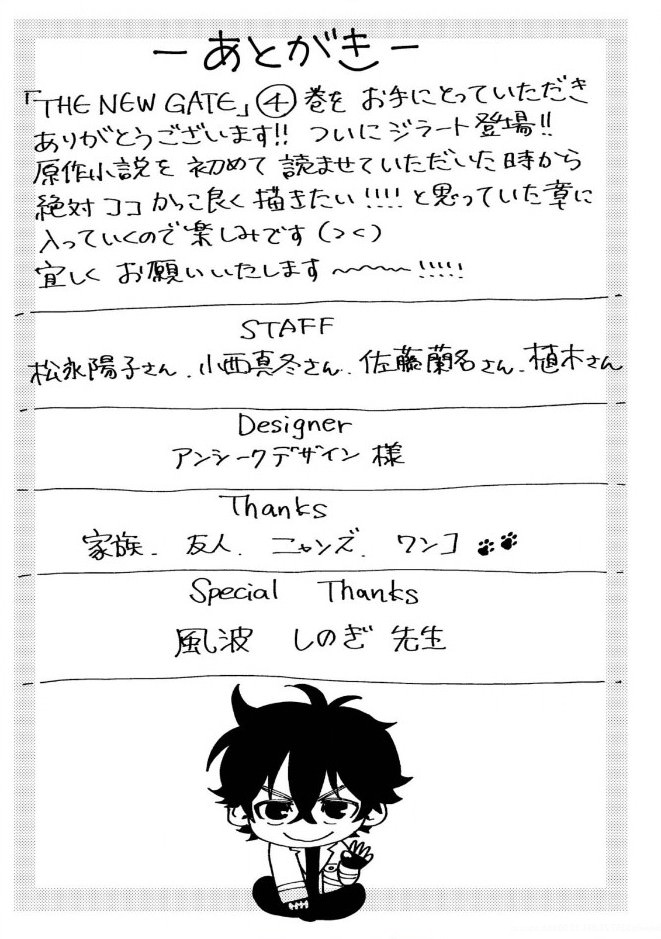 ーあとがきー
「THE NEW GATE」④巻を お手にとっていただき
ありがとうございます!! ついにジラート登場!!
原作小説を 初めて 読ませていただいた時から
絶対ココかっこ良く描きたい!!!! と思っていた章に
入っていくので楽しみです(><)
宜しく お願いいたします〜〜〜!!!!!
STAFF
松永陽子さん. 小西真冬さん. 佐藤蘭名さん. 植木さん
Designer
アンシークデザイン 様
Thanks
家族. 友人. ニャンズ. ワンコ
Special Thanks
風波 しのぎ 先生